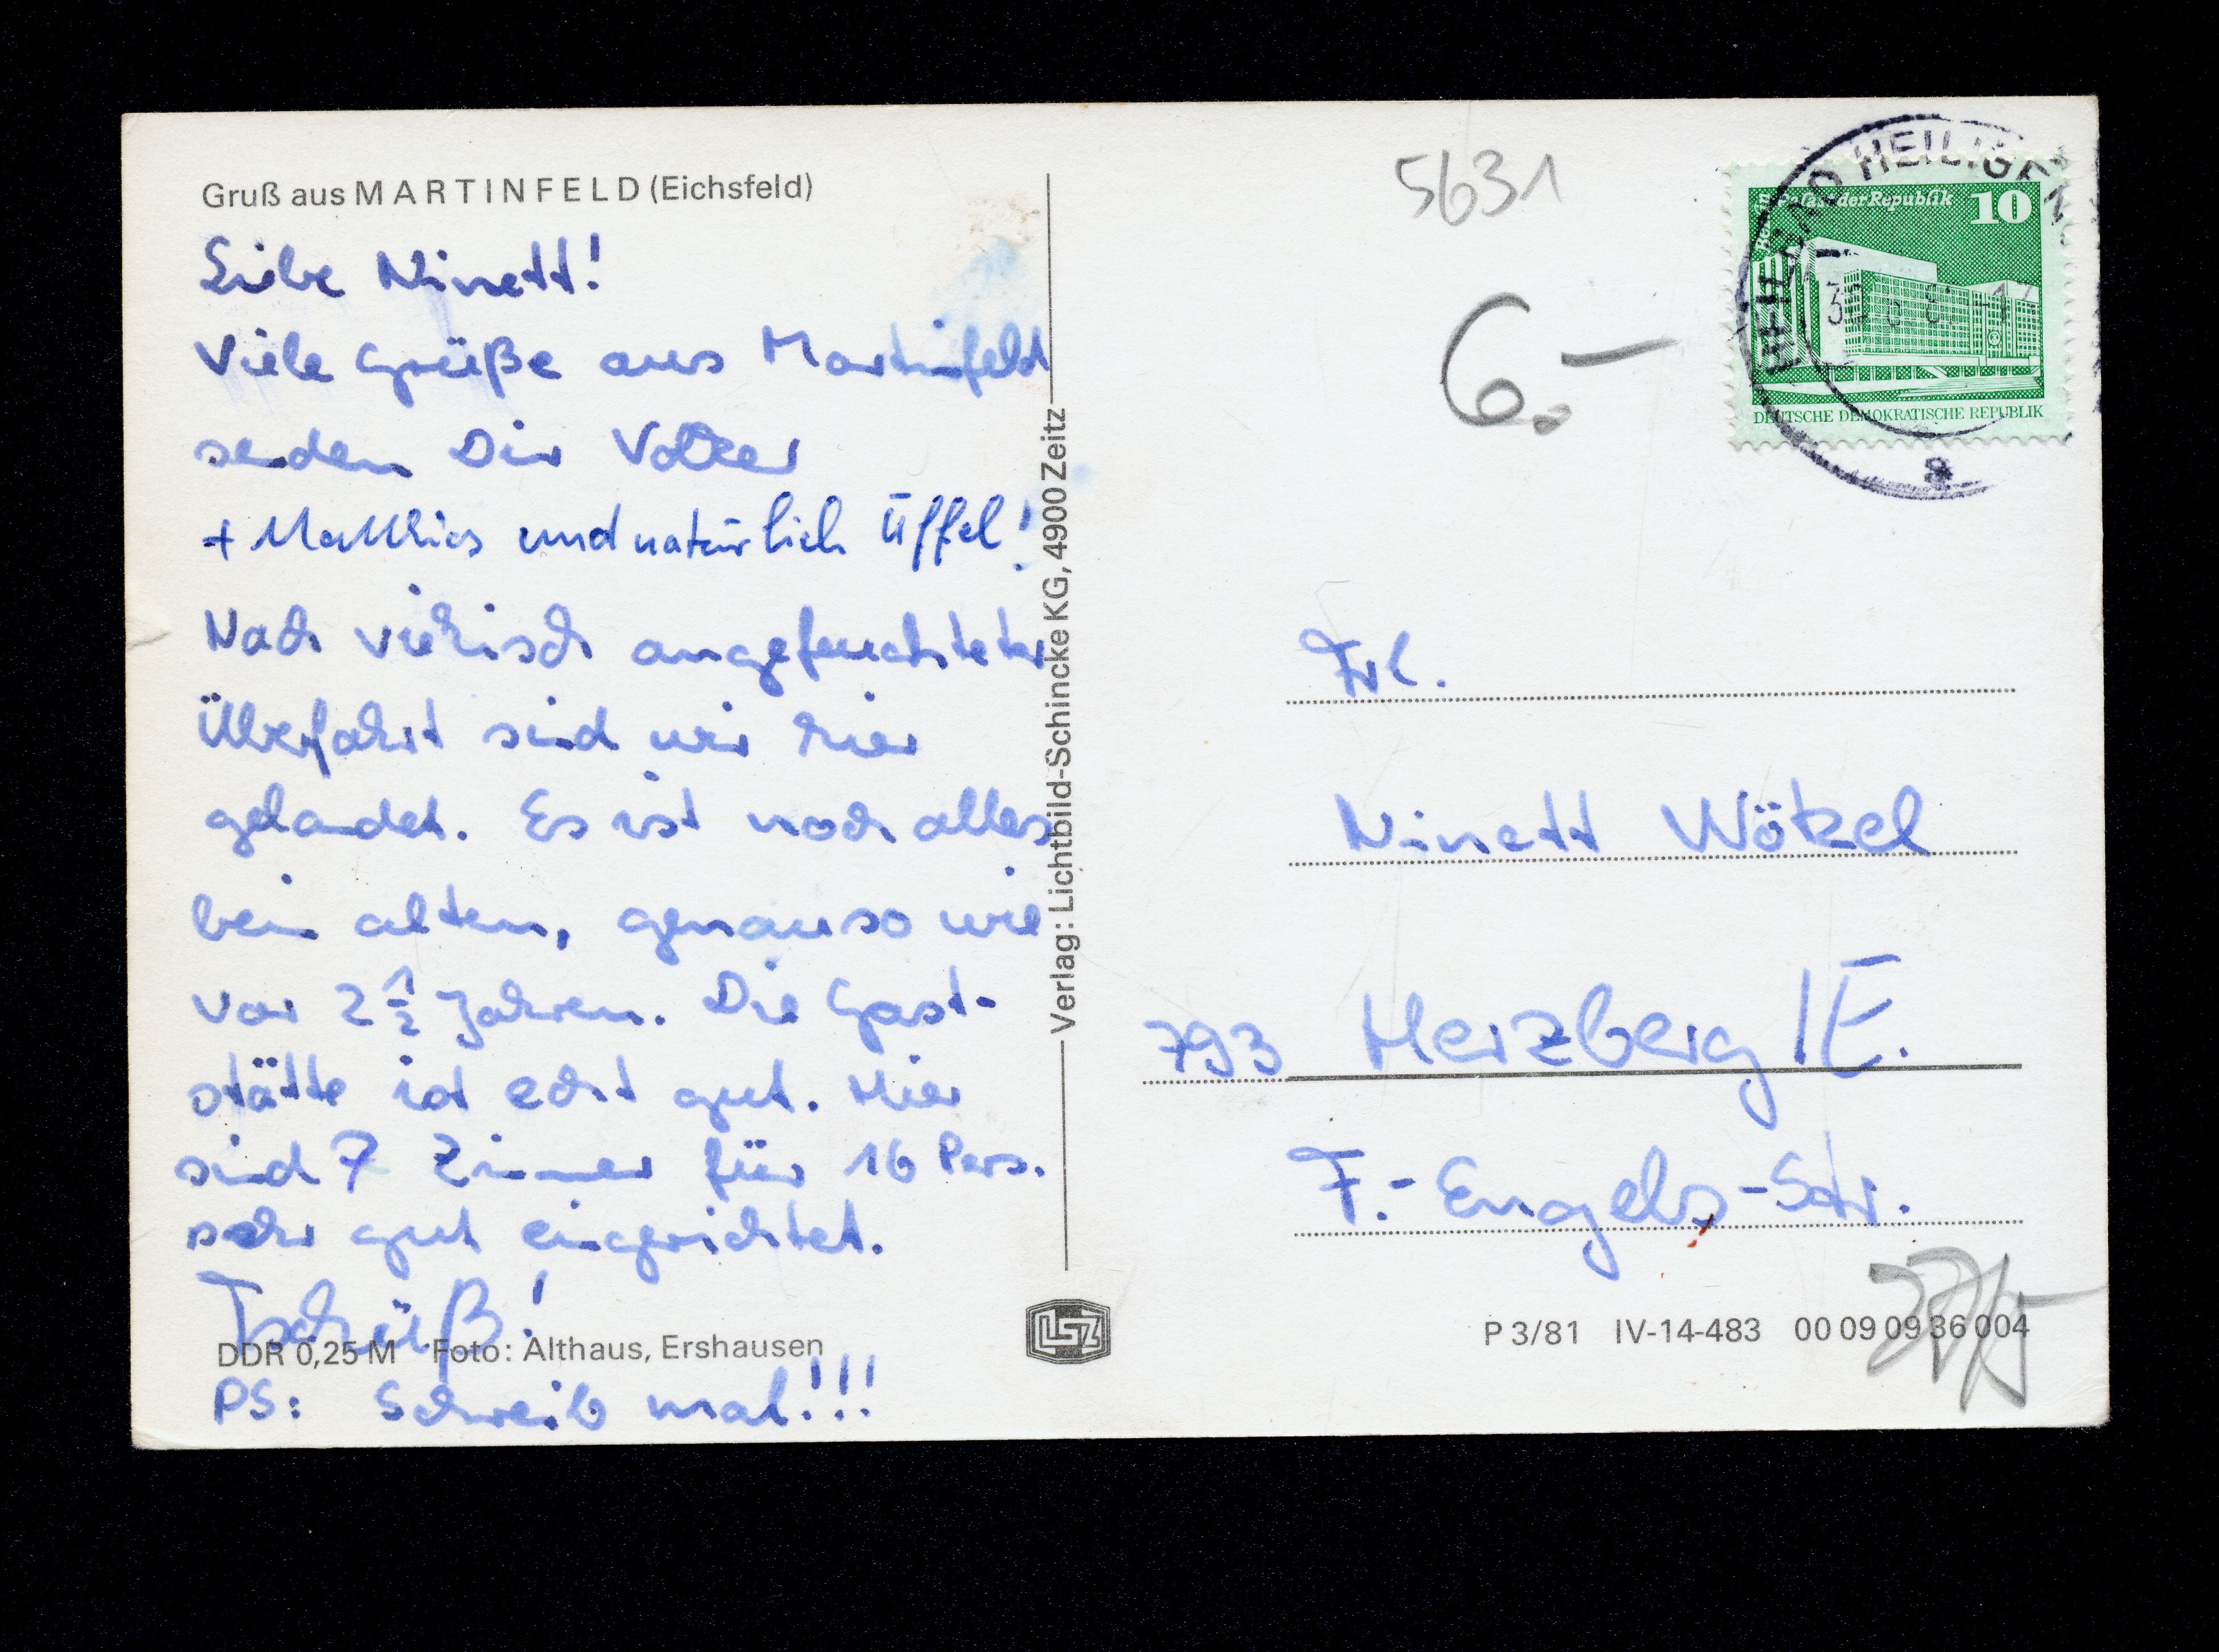 Gruß aus MARTINFELD (Eichsfeld)
Liebe Ninett!
Viele Grüße aus Martinfeld
senden Dir Volker
+ Matthias und natürlich Üffel!
Nach viehisch angefeuchteter
Überfahrt sind wir hier
gelandet. Es ist noch alles
beim alten, genauso wie
vor 2 1/2 Jahren. Die Gast-
stätte ist echt gut. Hier
sind 7 Zimmer für 16 Pers.
sehr gut eingerichtet.
Tschüß!
DDR 0,25 M Foto: Althaus, Ershausen
PS: Schreib mal!!!
Verlag: Lichtbild-Schincke KG, 4900 Zeitz
LSZ
5631
6.-
HEILBAD HEILIGEN
a
Berlin Palast der Republik 10
DEUTSCHE DEMOKRATISCHE REPUBLIK
Frl.
Ninett Wötzel
793 Herzberg /E.
F.-Engels-Str.
P 3/81 IV-14-483 00 09 09 36 004